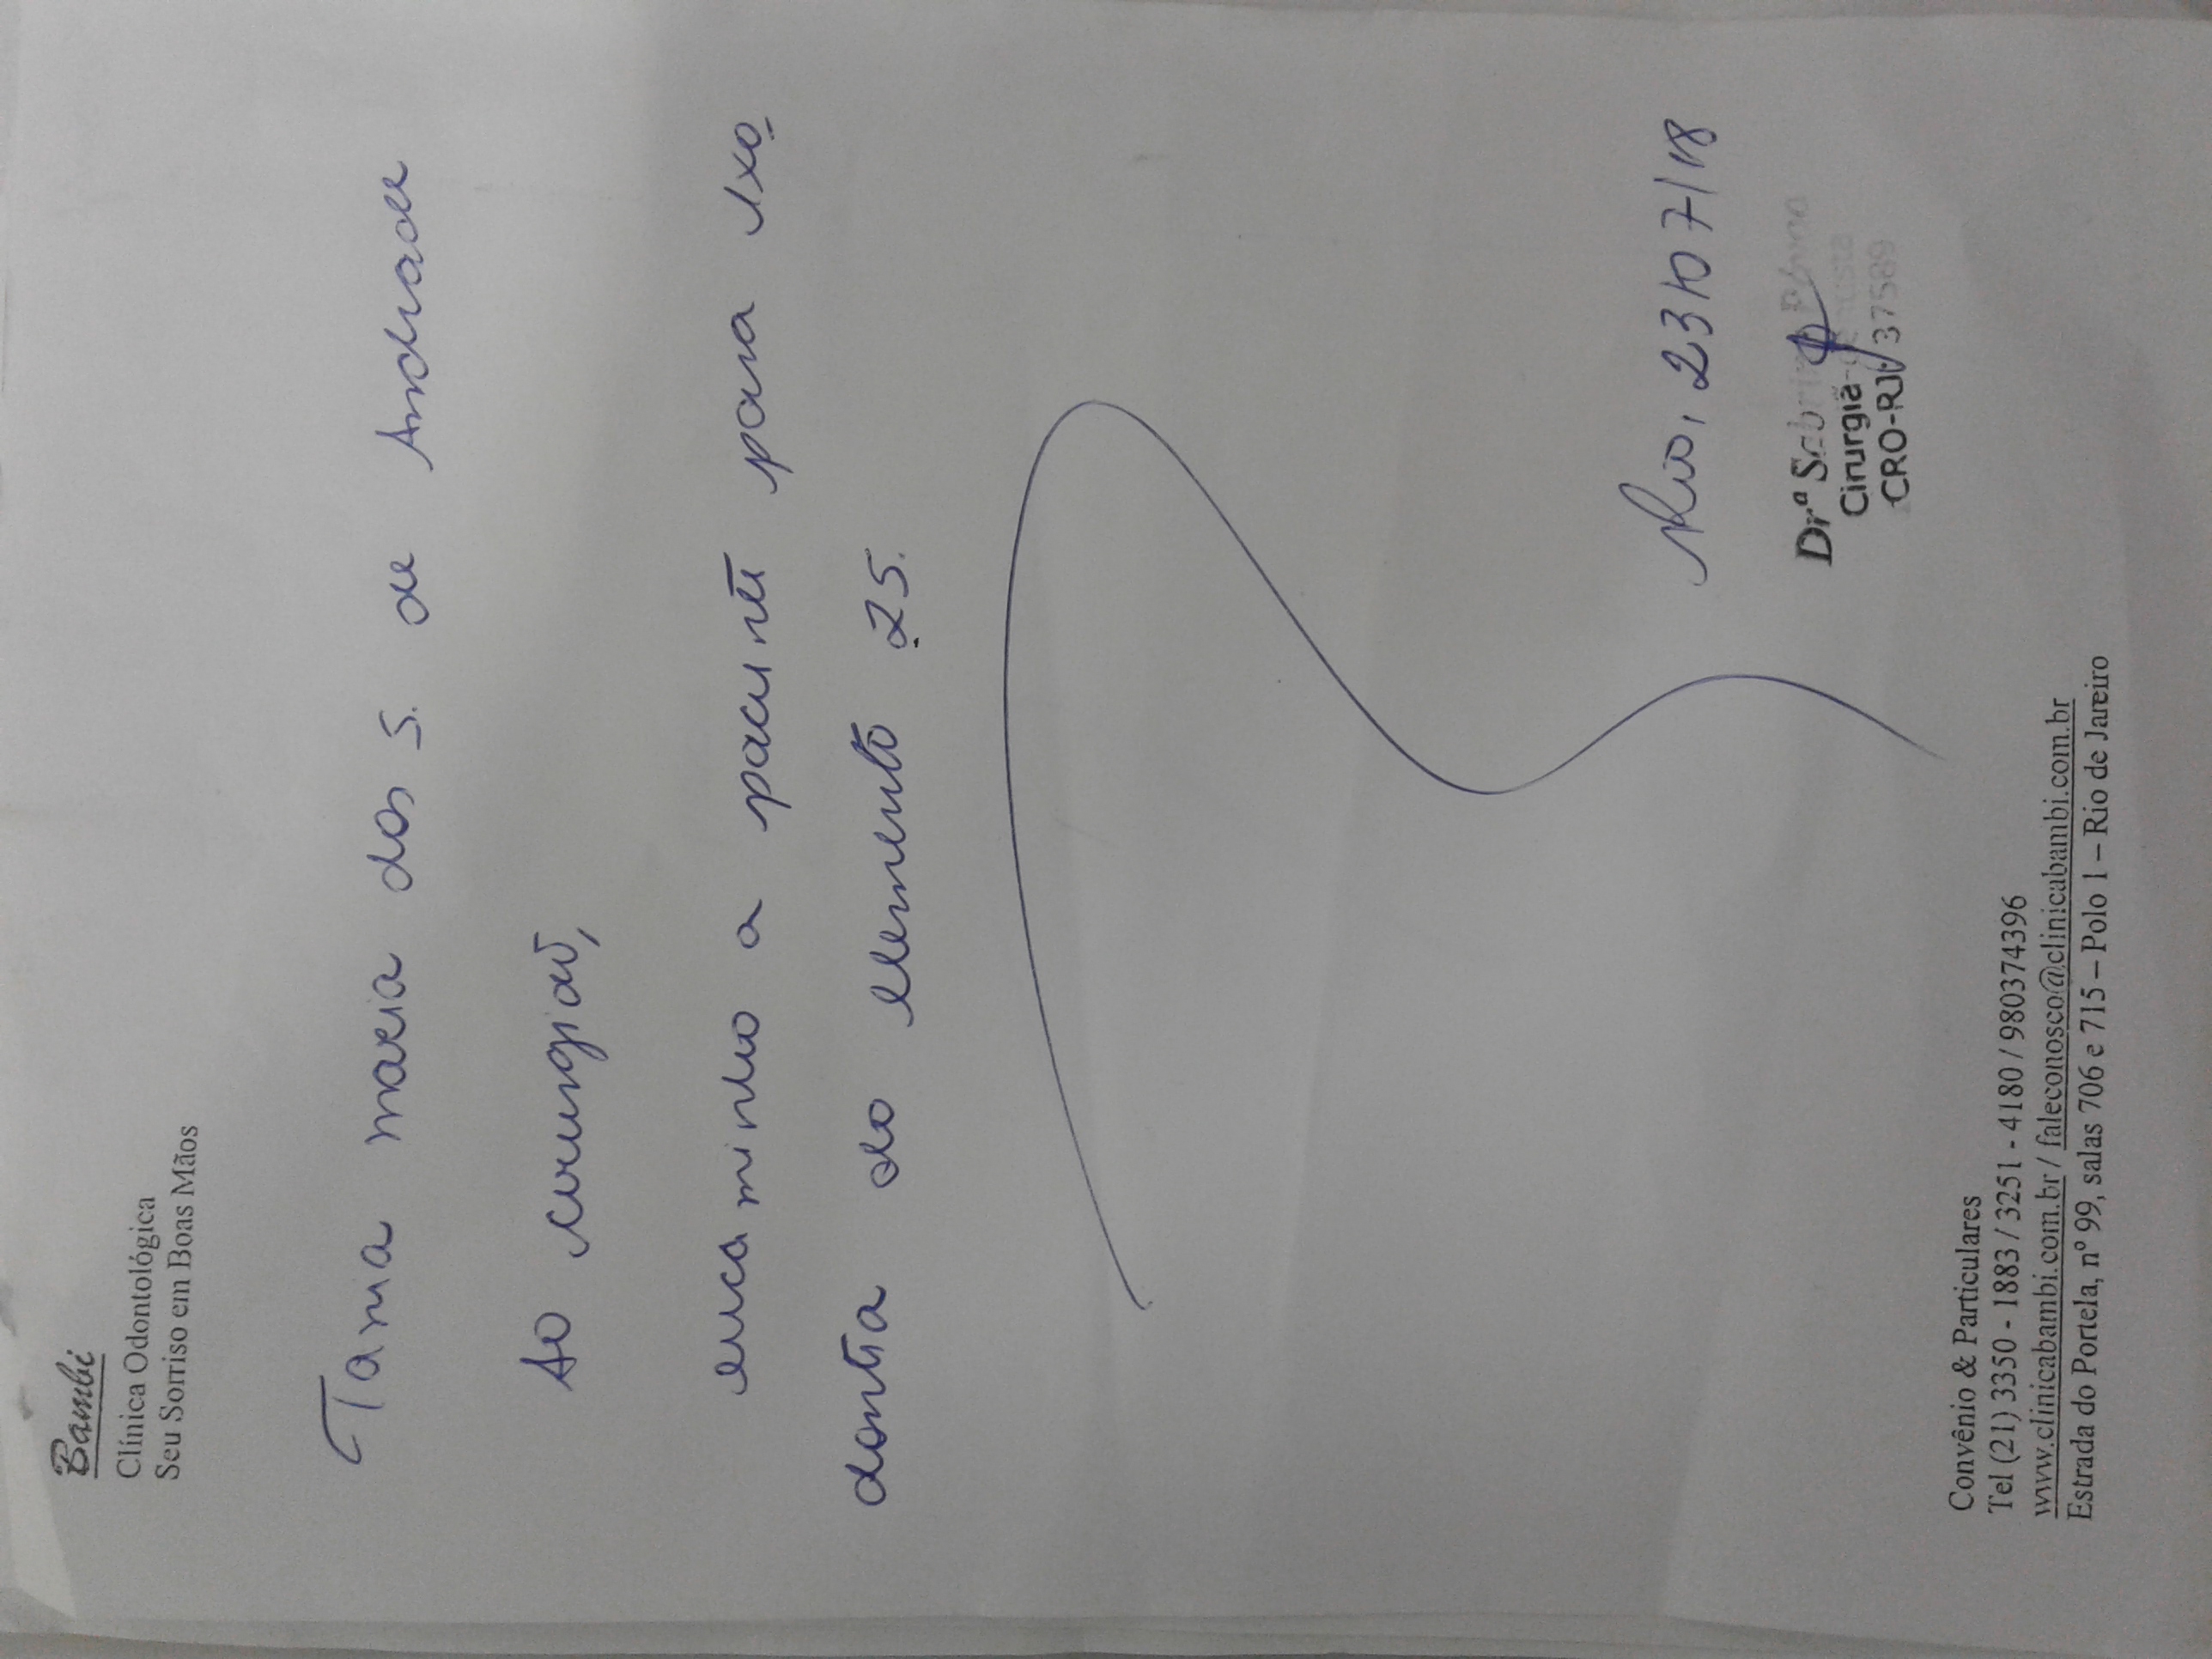 Bambi
Clínica Odontológica
Seu Sorriso em Boas Mãos
Tania maria dos S. de Andrade
Ao cirurgião,
encaminho a paciente para exo
dontia do elemento 25.
Rio, 23/07/18
Drª Sabrina
Cirurgiã-
CRO-RJ 37589
Convênio & Particulares
Tel (21) 3350 - 1883 / 3251 - 4180 / 980374396
www.clinicabambi.com.br / faleconosco@clinicabambi.com.br
Estrada do Portela, nº 99, salas 706 e 715 – Polo 1 – Rio de Janeiro